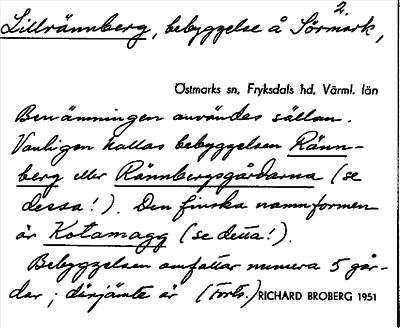 2.
Lillrännberg, bebyggelse å Sörmark,
Östmarks sn, Fryksdals hd, Värml. län
Benämningen användes sällan.
Vanligen kallas bebyggelsen Ränn-
berg eller Rännbergsgårdarna (se
dessa!). Den finska namnformen
är Kotamägg (se detta!).
Bebyggelsen omfattar numera 5 går-
dar; därjämte är (Forts.)
RICHARD BROBERG 1951